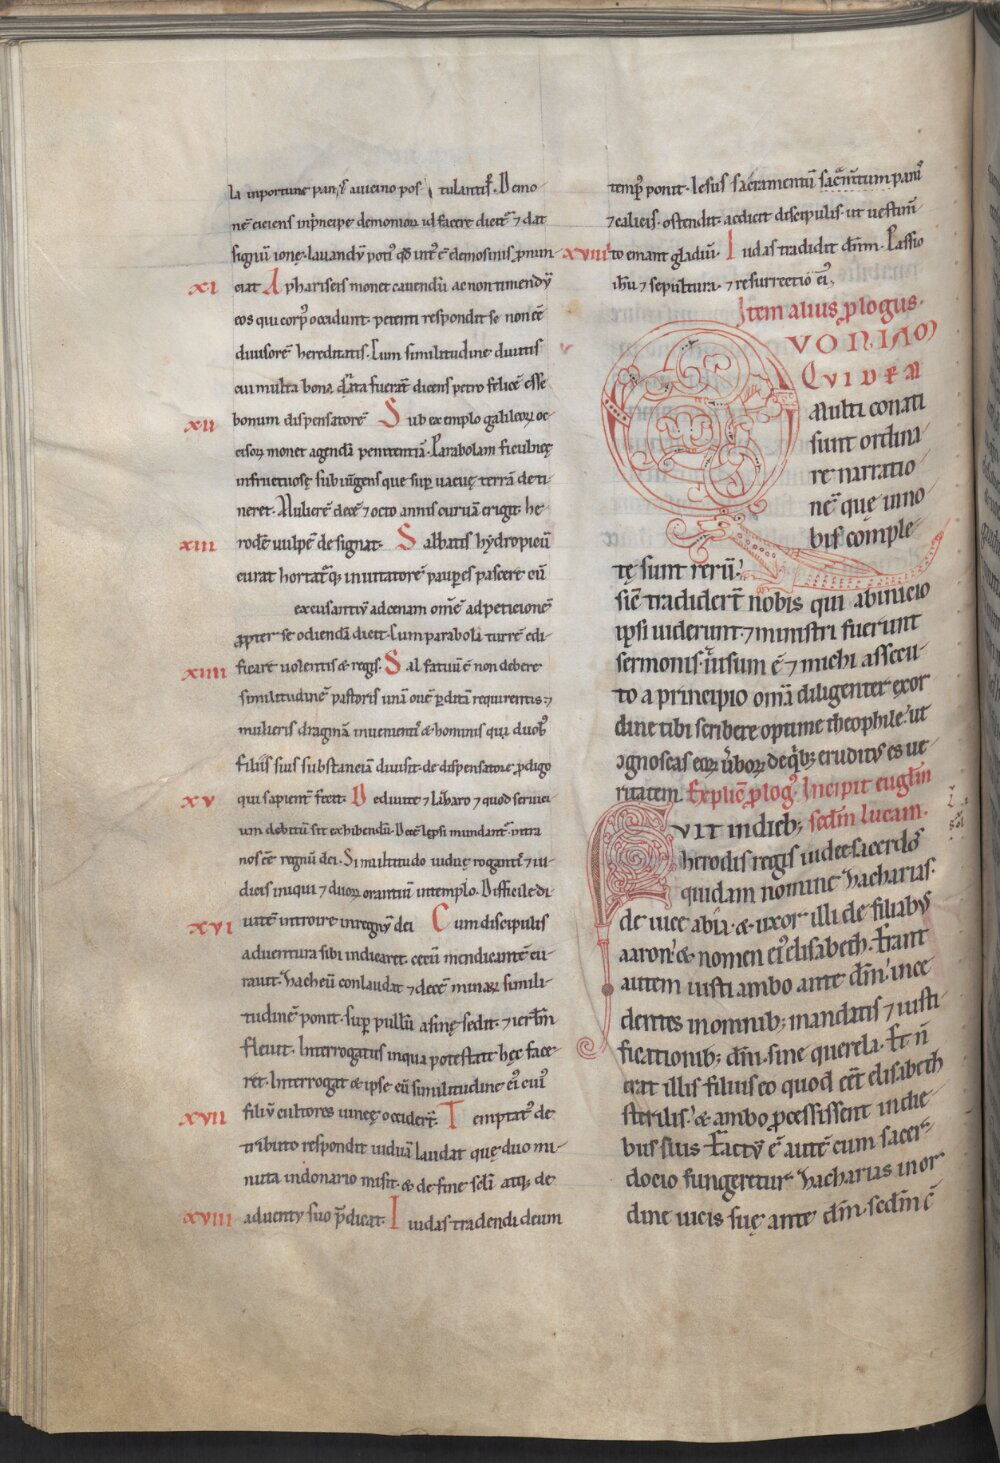 la inportune panis avicino pos tulantis. Demo
nē eiciens inpͥncipe demonioꝝ id facere dicit᷑ ⁊ dat
signū ione. lauandꝰ potiꝰ qd̄ int᷑ ē elemosinis ꝓnun
XI ciat A phariseis monet cauendū ac non timendꝰ
eos qui corpꝰ occidunt. petenti respondit se non eē
diuisorē hereditatis. Cum similitudine diuitis
cui multa bona data fuerat̄ dicens petro felicē esse
XII bonum dispensatorē Sub exemplo galileoꝝ oc
cisoꝝ monet agendā penitentiā. Parabolam ficulneę
infructuosę subiūgens que suꝑ uacuę terrā deti
neret. Mulierē decē ⁊ octo annis curuā erigit. he
XIII rodē uulpē designat. Sabbatis hydropicū
curat hortat᷑ꝙ inuitatorē pauꝑes pascere cū
excusantiū ad cenam omē ad peticionē
ꝓpter se odiendā dicit. Cum parabola turrē edi
XIIII ficare uolentis & regis. Sal fatuū ē non debere
similitudinē pastoris unā ouē ꝑditā requirentis ⁊
mulieris dragmā inuenientis & hominis qui duobꝰ
filiis suis substanciā diuisit. de dispensatore ꝓdigo
XV qui sapient᷑ fecit. De diuite ⁊ lazaro ⁊ quod seruiei
um debitū sit exhibendū. Decē lepsi mundant᷑ intra
nos eē regnū dei. Similitudo uiduę rogantis ⁊ iu
dicis iniqui ⁊ duoꝝ orantiū intemplo. Difficile di
XVI uitē introire inregnū dei Cum discipulis
aduentura sibi indicaret. cecū mendicantē cu
rauit. Zacheū conlaudat ⁊ decē minaꝝ simili-
tudinē ponit. suꝑ pullū asinę sedit. ⁊ ierłm
fleuit. Interrogatus in qua potestate hęc face-
ret. Interrogat & ipse eū similitudine eiꝰ cuiꝰ
XVII filiū cultores uineę occider̄t. Temptat᷑ de
tributo respondit uiduā laudat quę duo mi-
nuta indonario misit. & de fine scłi atꝗ de
XVIII aduentꝰ suo p̄dicat. Iudas tradendi deum
tempꝰ ponit. Iesus sacramentū sacm̄tum panis
⁊ calicis. ostendit. ac dicit discipulis. ut uestim̄
XVIIII to emant gladiū. Iudas tradidit dn̄m. Passio
ihū ⁊ sepultura. ⁊ resurrectio eiꝰ.
Item alius ꝓlogus.
QVONIAM
QVIDEM
Multi conati
sunt ordina
re narratio
nē quę inno
bis comple-
tę sunt rerū.
sic̄ tradider̄t nobis qui abinicio
ipsi uiderunt. ⁊ ministri fuerunt
sermonis. uisum ē ⁊ michi assecu-
to a principio omĩa diligenter exor
dine tibi scribere optime theophile. ut
agnoscas eoꝝ ūboꝝ de qͥbꝫ eruditꝰ es ue
ritatem. Explic̄ ꝓlogꝰ. Incipit eugłm
FVIT in diebꝫ scdm̄ lucam.
herodis regis iudee. sacerdos
quidam nomine zacharias.
de uice abia. & uxor illi de filiabꝰ
aaron. & nomen eiꝰ elisabeth. Erant
autem iusti ambo ante dm̄. ince
dentes in omnibꝫ mandatis ⁊ iusti
ficationibꝫ dn̄i. sine querela. Et n̄
erat illis filius eo quod eēt elisabeth
sterilis. & ambo ꝓcessissent in die
bus suis. Factū ē autē cum sacer-
docio fungeretur zacharias in or
dine uicis suę ante dm̄. scdm̄ c̄